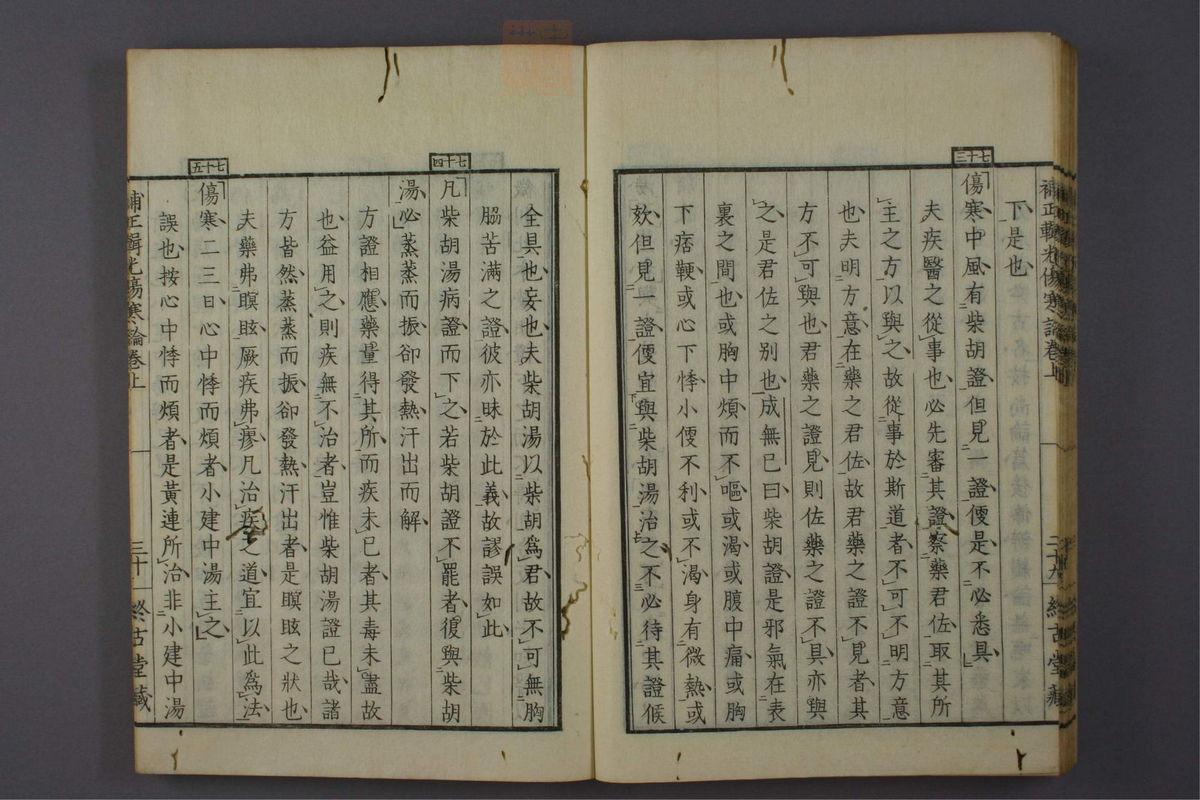 補正輯光傷寒論卷上
三十九
終古堂藏
下是也
七十三
傷寒中風有柴胡證但見一證便是不必悉具
夫疾醫之從事也必先審其證察藥君佐取其所
主之方以與之故從事於斯道者不可不明方意
也夫明方意在藥之君佐故君藥之證不見者其
方不可與也君藥之證見則佐藥之證不具亦與
之是君佐之別也成無已曰柴胡證是邪氣在表
裏之間也或胸中煩而不嘔或渴或腹中痛或胸
下痞鞕或心下悸小便不利或不渴身有微熱或
欬但見一證便宜與柴胡湯治之不必待其證候
全具也妄也夫柴胡湯以柴胡爲君故不可無胸
脇苦滿之證彼亦昧於此義故謬誤如此
七十四
凡柴胡湯病證而下之若柴胡證不罷者復與柴胡
湯必蒸蒸而振卻發熱汗出而解
方證相應藥量得其所而疾未已者其毒未盡故
也益用之則疾無不治者豈惟柴胡湯證已哉諸
方皆然蒸蒸而振卻發熱汗出者是瞑眩之狀也
夫藥弗瞑眩厥疾弗瘳凡治疾之道宜以此爲法
七十五
傷寒二三日心中悸而煩者小建中湯主之
誤也按心中悸而煩者是黃連所治非小建中湯
補正輯光傷寒論卷上
三十一
終古堂藏